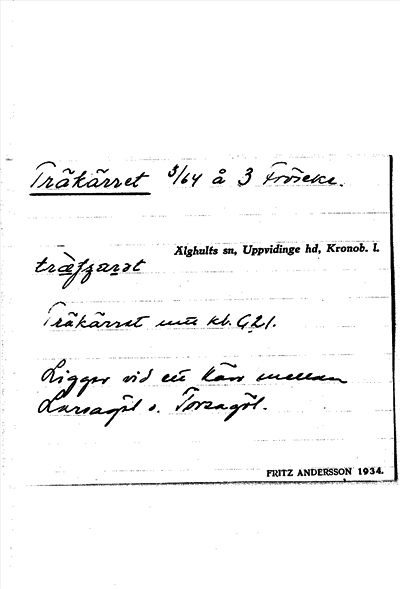 Träkärret 3/64 å 3 Fröseke.
Älghults sn, Uppvidinge hd, Kronob. l.
Träkärret kb. G21.
Ligger vid ett kärr mellan
Larsagöl o. Torsagöl.
FRITZ ANDERSSON 1934.